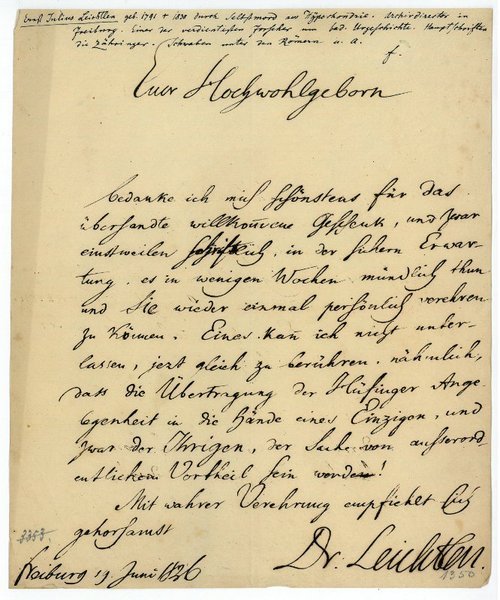 Ernst Julius Leichtlen geb. 1791 + 1830 durch Selbstmord aus Hypochondrie. Archivdirector in
Freiburg. Einer der verdientesten Forscher um bad. Urgeschichte. Hauptschriften
die Zähringer. Schwaben unter den Römern u. a.
f.
Euer Hochwohlgeborn
bedanke ich mich schönstens für das
übersandte willkom̄ene Geschenk, und zwar
einstweilen schriftlich, in der sichern Erwar-
tung, es in wenigen Wochen mündlich thun
und Sie wieder einmal persönlich verehren
zu können. Eines kan̄ ich nicht unter-
lassen, jezt gleich zu berühren, nähmlich,
dass die Übertragung der Hüfinger Ange-
legenheit in die Hände eines Einzigen, und
zwar der Ihrigen, der Sache von ausserord-
entlichem Vortheil sein werde!
Mit wahrer Verehrung empfiehlt sich
gehorsamst
3353.
Dr. Leichtlen.
Freiburg 19 Juni 1826
1350